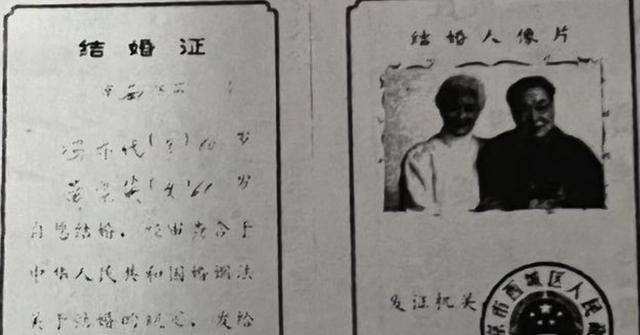 结婚证
冯亦代( 岁
(女) 岁
自愿结婚，经审查合于
中华人民共和国婚姻法
关于结婚的规定，发给
结婚人像片
发证机关
京市西城区人民政